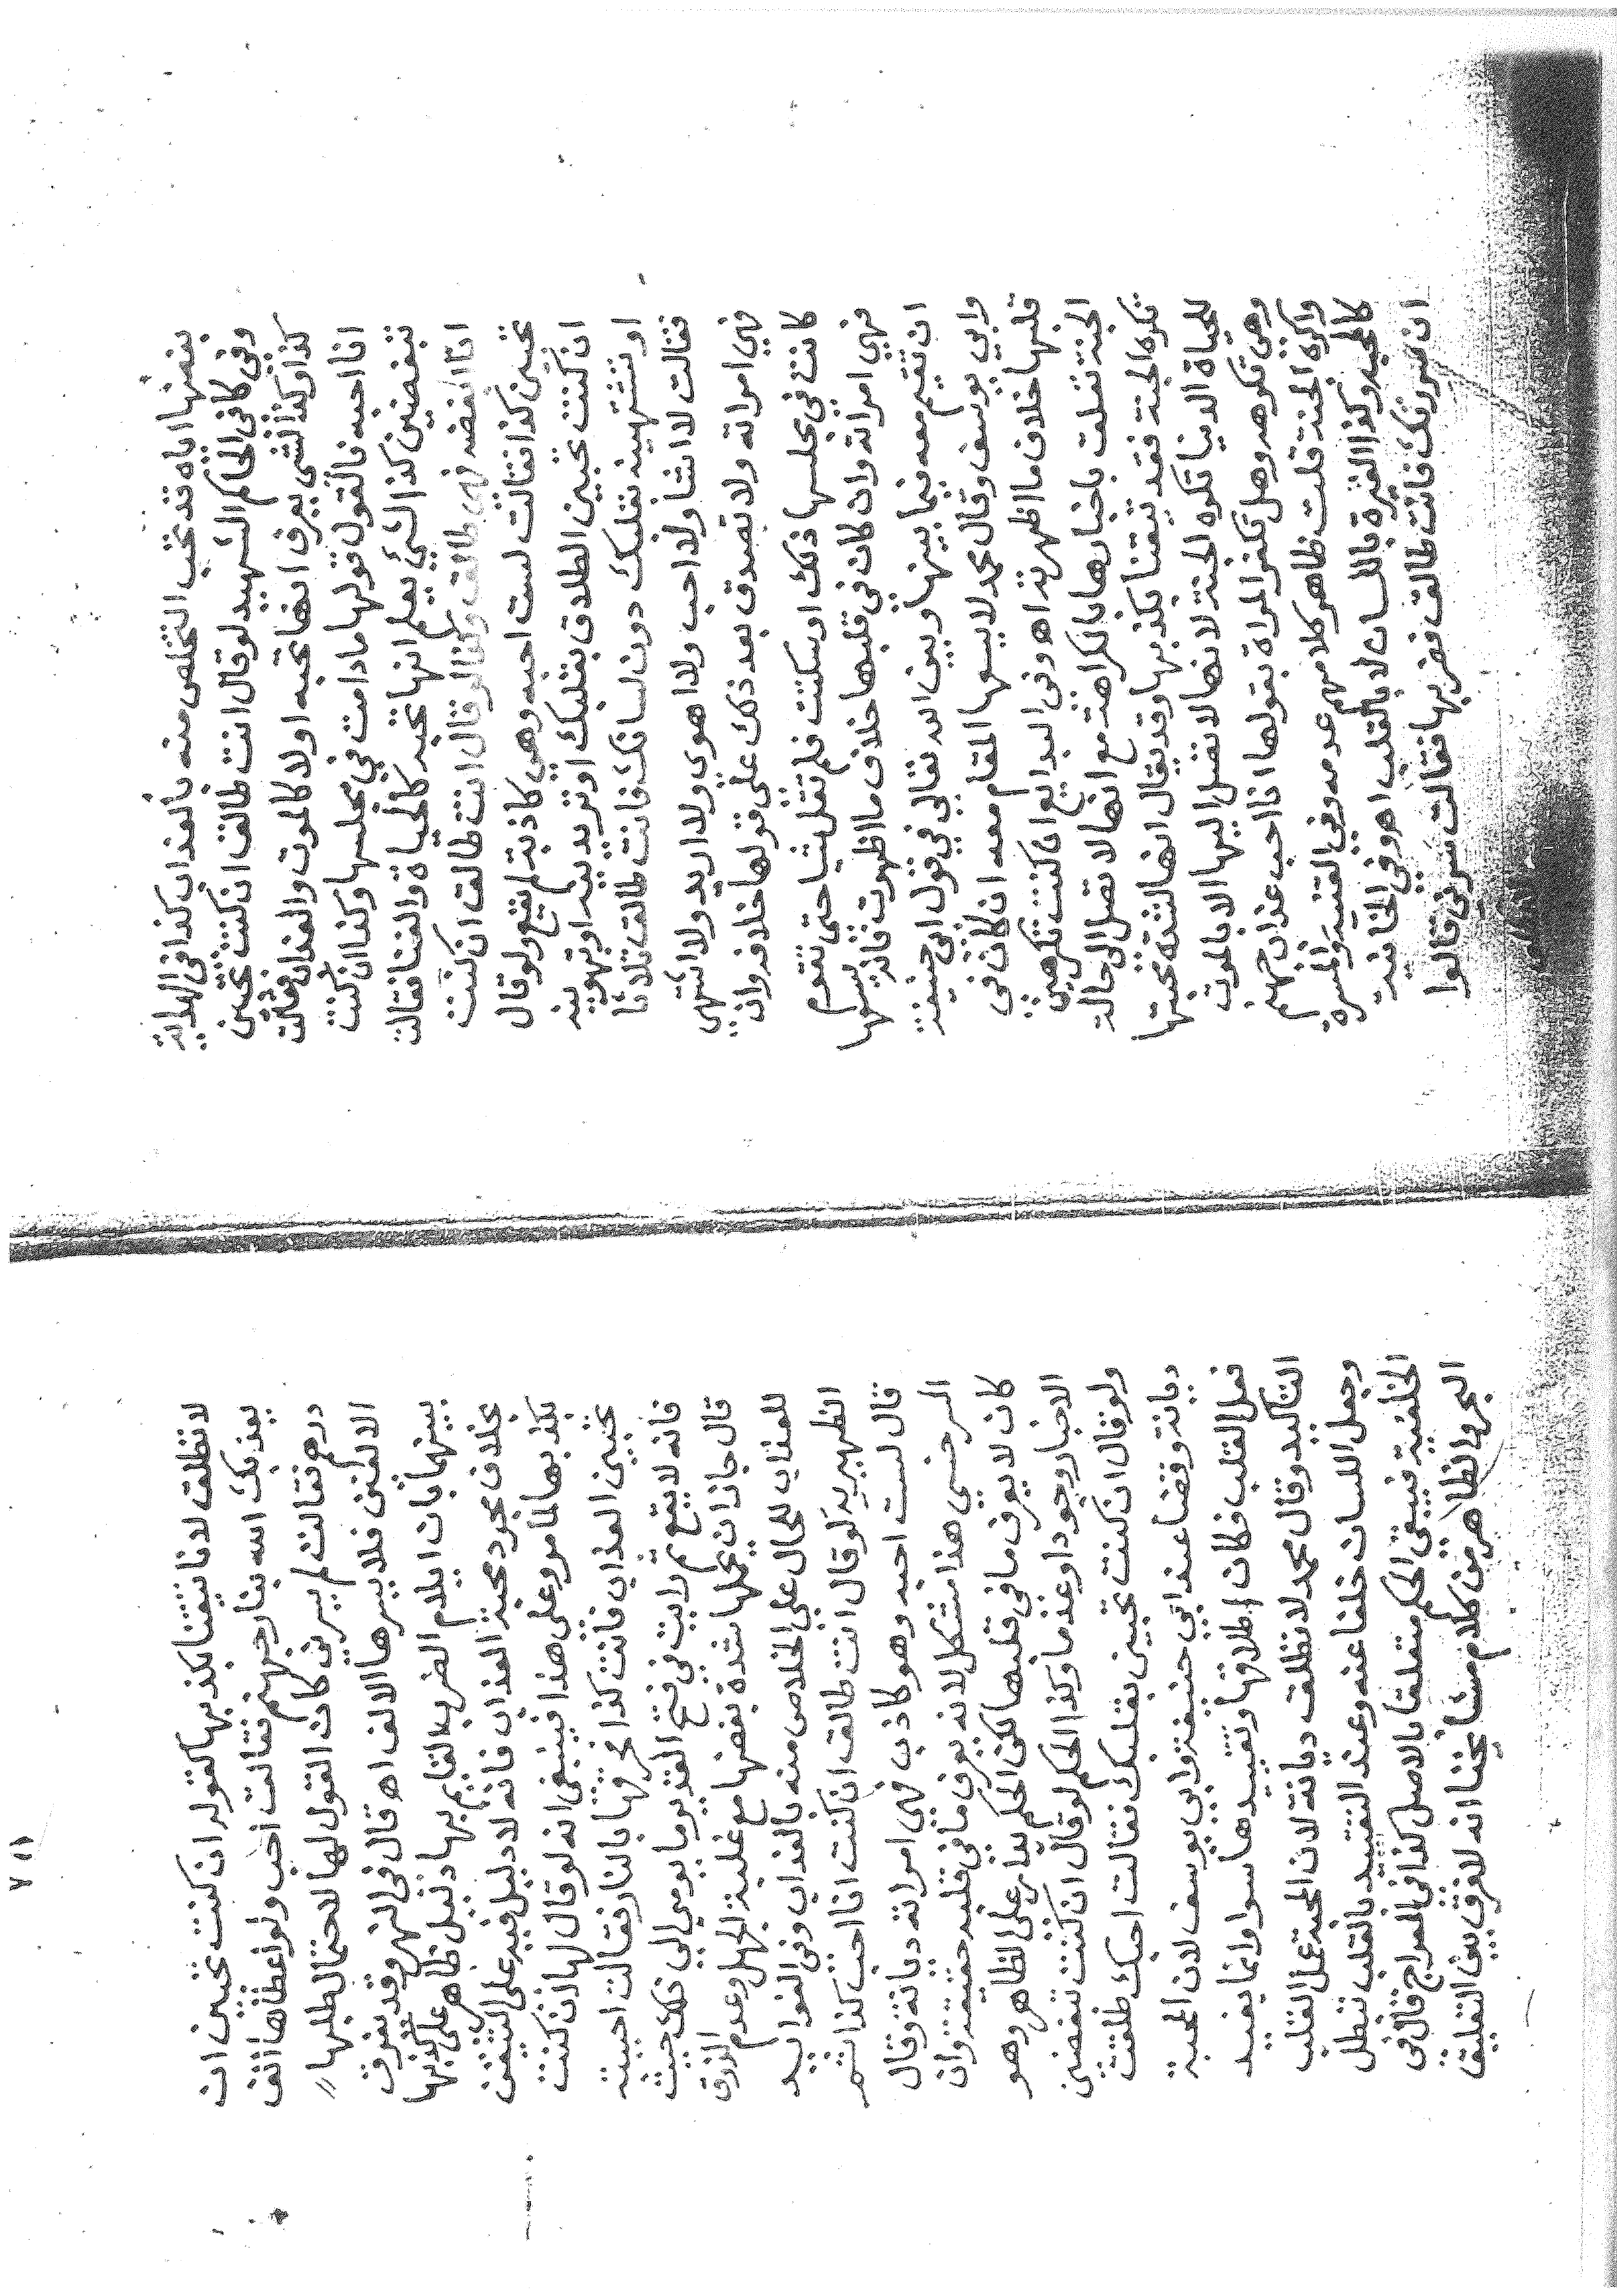 بغضها اياه قد تحب التخلص منه بالعذاب كذا في الهداية
وفي كافي الحاكم الشهيد لو قال انت طالق ان كنت تحبين
كذا وكذا لشي يعرف انها تحبه اولا كالموت والعذاب فقالت
انا احبه فالقول قولها مادامت في مجلسها وكذا ان كنت
تبغضين كذا لشي يعلم انها تحبه كالحياة والغنا فقالت
انا ابغضه فهي طالق وكذا لو قال انت طالق ان كنت
تحبين كذا فقالت لست احبه وهي كاذبة لم يقع ولو قال
ان كنت تحبين الطلاق بقلبك او تريديه او تهوينه
او تشتهينه بقلبك دون لسانك فانت طالق ثلاثا
فقالت لا اشا ولا احب ولا اهوى ولا اريد ولا اشتهي
فهي امراته ولا تصدق بعد ذلك على قولها خلافه وان
كانت في مجلسها ذلك او سكتت فلم تقل شيا حتى تقوم
فهي امراته وان كان في قلبها خلاف ما اظهرت فانه يسعها
ان تقيم معه فيما بينها وبين الله تعالى في قول ابي حنيفة
وابي يوسف وقال محمد لا يسعها المقام معه ان كان في
قلبها خلاف ما اظهرته اه وفي البدايع ان كنت تكرهين
الجنة تعلقت باخبارها بالكراهة مع انها لا تصل الى حالة
تكره الجنة فقد تيقنا بكذبها وقد يقال انها لشدة محبتها
للحياة الدنيا تكره الجنة لانها لا تصل اليها الا بالموت
وهي تكرهه وهل تكفر المراة بقولها انا احب عذاب جهنم
واكره الجنة قلت ظاهر كلامهم عدمه وفي القنية والمسرة
كالمحبه وكذا الغيرة باللسان لا بالقلب اه وفي الخانية
ان سررتك فانت طالق فضربها فقالت سرني قالوا
لا تطلق لانا تيقنا بكذبها كقوله ان كنت تحبين ان
يعذبك الله بنار جهنم فقالت احب ولو اعطاها الف
درهم فقالت لم يسرني كان القول لها لاحتمال طلبها
الالفين فلا يسرها الالف اه قال في النهر وقد يفرق
بينهما بان ايلام الضرب القايم بها دليل ظاهر على كذبها
بخلاف مجرد محبة العذاب فانه لا دليل فيه على التيقن
بكذبها لما مر وعلى هذا فينبغي انه لو قال لها ان كنت
تحبين العذاب فانت كذا فحرقها بالنار فقالت احببته
فانه لا يقع ثم رايت في فتح القدير ما يومي الى ذلك حيث
قال جاز ان يحملها شدة بغضها مع غلبة الجهل وعدم الذوق
للعذاب للحال على الخلاص منه بالعذاب وفي الفوايد
الظهيرية لو قال انت طالق ان كنت انا احب كذا ثم
قال لست احبه وهو كاذب فهي امراته ديانة وقال
السرخسي هذا مشكل لانه يعرف ما في قلبه حقيقة وان
كان لا يعرف ما في قلبها لكن الحكم يدار على الظاهر وهو
الاخبار وجودا وعدما وكذا الحكم لو قال ان كنت تبغضيني
ولو قال ان كنت تحبيني بقلبك فقالت احبك طلقت
ديانة وقضا عند ابي حنيفة وابي يوسف لان المحبة
فعل القلب فكان اطلاقها وتقييدها سوا وانما يفيد
التاكيد وقال محمد لا تطلق ديانة لان المحبة عمل القلب
وجعل اللسان خلفا عنه وعند التقييد بالقلب تبطل
الخلفية فيبقى الحكم متعلقا بالاصل كذا في المعراج قال في
البحر والظاهر من كلام مشايخنا انه لا فرق بين التعليق